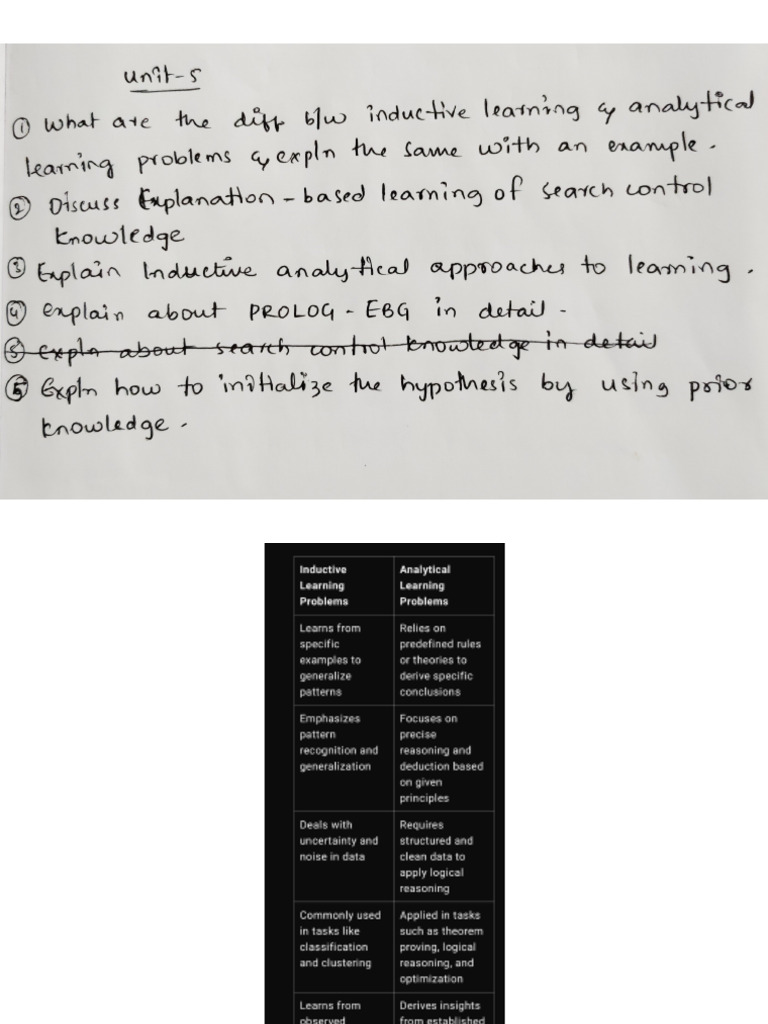 Unit-5
① What are the diff b/w inductive learning & analytical
learning problems & expln the same with an example.
② Discuss Explanation-based learning of search control
knowledge
③ Explain Inductive analytical approaches to learning.
④ explain about PROLOG-EBG in detail-
⑤ expln about search control knowledge in detail
⑤ Expln how to initialize the hypothesis by using prior
knowledge.
Inductive
Learning
Problems
Analytical
Learning
Problems
Learns from
specific
examples to
generalize
patterns
Relies on
predefined rules
or theories to
derive specific
conclusions
Emphasizes
pattern
recognition and
generalization
Focuses on
precise
reasoning and
deduction based
on given
principles
Deals with
uncertainty and
noise in data
Requires
structured and
clean data to
apply logical
reasoning
Commonly used
in tasks like
classification
and clustering
Applied in tasks
such as theorem
proving, logical
reasoning, and
optimization
Learns from
observed
Derives insights
from established